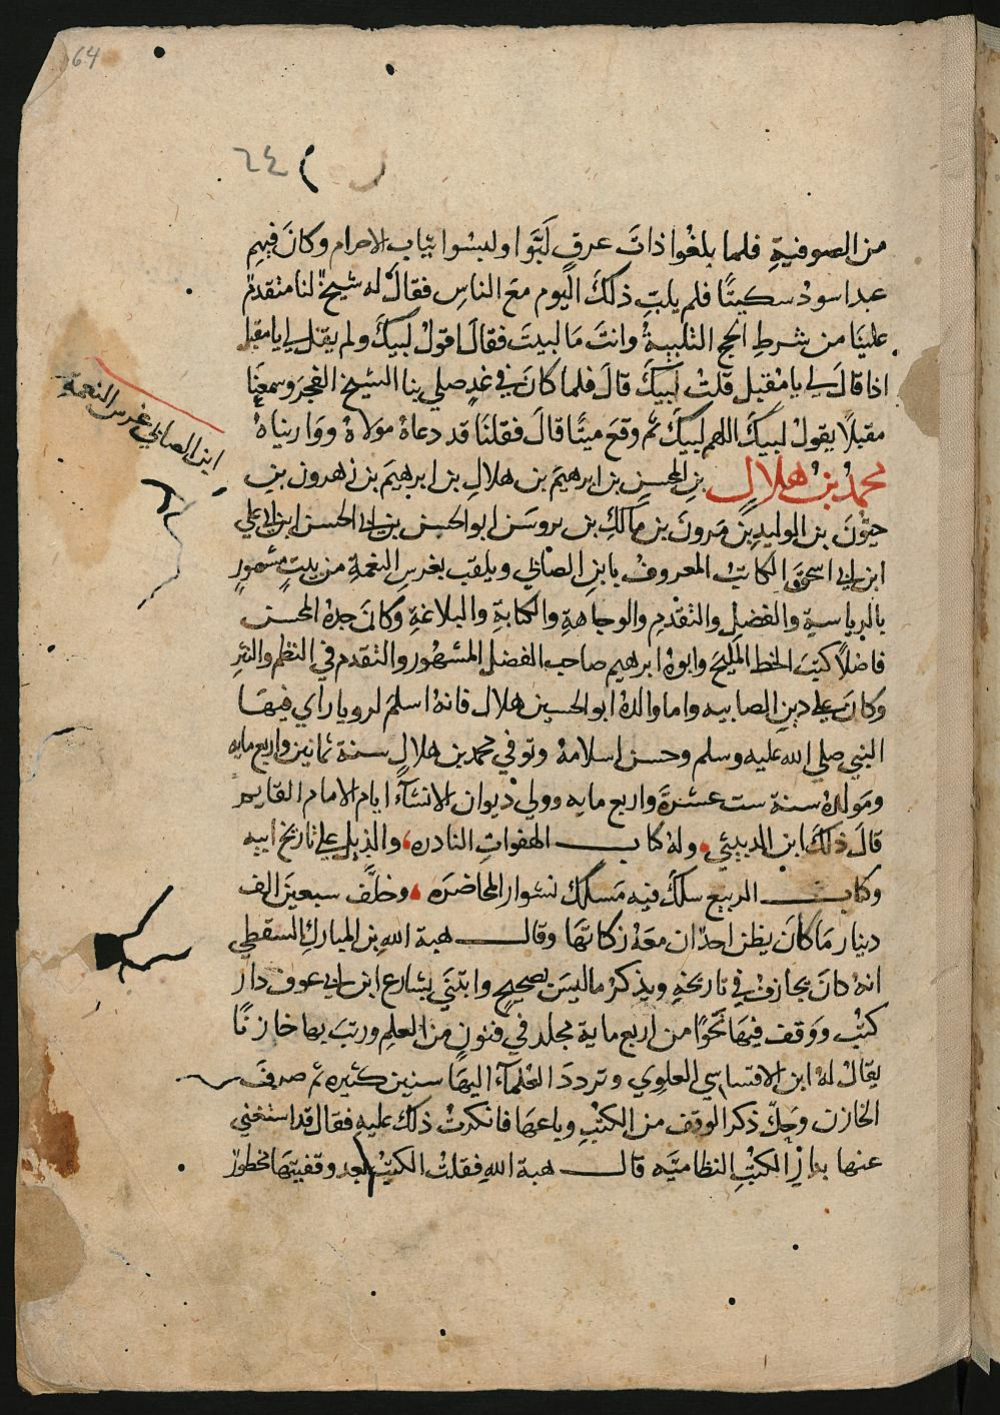 64
٦٤
من الصوفية فلما بلغوا ذاتَ عرقٍ لَبَّوا ولبسوا ثياب الاحرام وكانَ فيهم
عبد اسود سكيتًا فلم يلبِّ ذلكَ اليوم معَ الناسِ فقالَ له شيخ لنا متقدم
علينَا من شرطِ الحج التلبيةُ وانتَ مَا لبيتَ فقالَ اقولُ لبيكَ ولم يقل لي يا مقبل
اذا قالَ لي يا مقبل قلتُ لبيكَ قالَ فلما كانَ في غدٍ صلي بنا الشيخ الفجرَ وسمعنَا
مقبلًا يقولُ لبيكَ اللهم لبيكَ ثم وقعَ ميتًا قالَ فقلنَا قد دعاهُ مولاهُ وواريناهُ
محمدُ بنُ هلال بنِ المحسن بن ابرهيمَ بن هلالِ بن ابرهيمَ بن زهرون بنِ
حيّونَ بن الوليدِ بن مَرونَ بن مَالكِ بن بروسَن ابو الحسن بن ابي الحسن ابن ابي علي
ابن ابي اسحق الكاتبُ المعروفُ بابنِ الصابي ويلقب بغرسِ النعمةِ من بيتٍ مشهورٍ
بالرياسةِ والفضلِ والتقدمِ والوجاهةِ والكتابةِ والبلاغةِ وكانَ جدهُ المحسن
فاضلًا كتبَ الخط المليحَ وابوهُ ابرهيم صاحب الفضل المشهور والتقدم في النظم والنثرِ
وكانَ علي دينِ الصابيه واما والدهُ ابو الحسين هلال فانهُ اسلمَ لرويا راي فيهَا
النبي صلي الله عليه وسلم وحسن اسلامهُ وتوفي محمد بن هلالٍ سنةَ ثمانين واربع مايه
ومَولدهُ سنة ست عشرةَ واربع مايه وولي ديوان الانشاء ايام الامام القايم
قالَ ذلكَ ابن الدبيثي وله كتاب الهفوات النادره والذيل علي تاريخ ابيه
وكتاب الربيع سلكَ فيه مَسلك نشوار المحاضرَه وخلَّف سبعينَ الف
دينار مَا كانَ يظن احدٌ ان معَهُ زكاتهَا وقال هبة اللهِ بن المباركِ السقطي
انهُ كانَ يجازفُ في تاريخهِ ويذكرُ ما ليسَ بصحيحٍ وابتني بشارعِ ابن ابي عوف دار
كتبٍ ووَقف فيهَا نحوًا من اربع مايةِ مجلد في فنونٍ من العلمِ ورتبَ بها خازنًا
يقالُ لهُ ابن الاقساسي العلوي وترددَ العلماء اليهَا سنين كثيره ثم صرفَ
الخازن وحكَّ ذكر الوقف من الكتبِ وباعهَا فانكرتُ ذلك عليهِ فقال قد استغني
عنها بدارِ الكتبِ النظاميّه قال هبة اللهِ فقلتُ الكتبُ بعد وقفيتهَا محظورٌ
ابن الصابي غرس النعمة